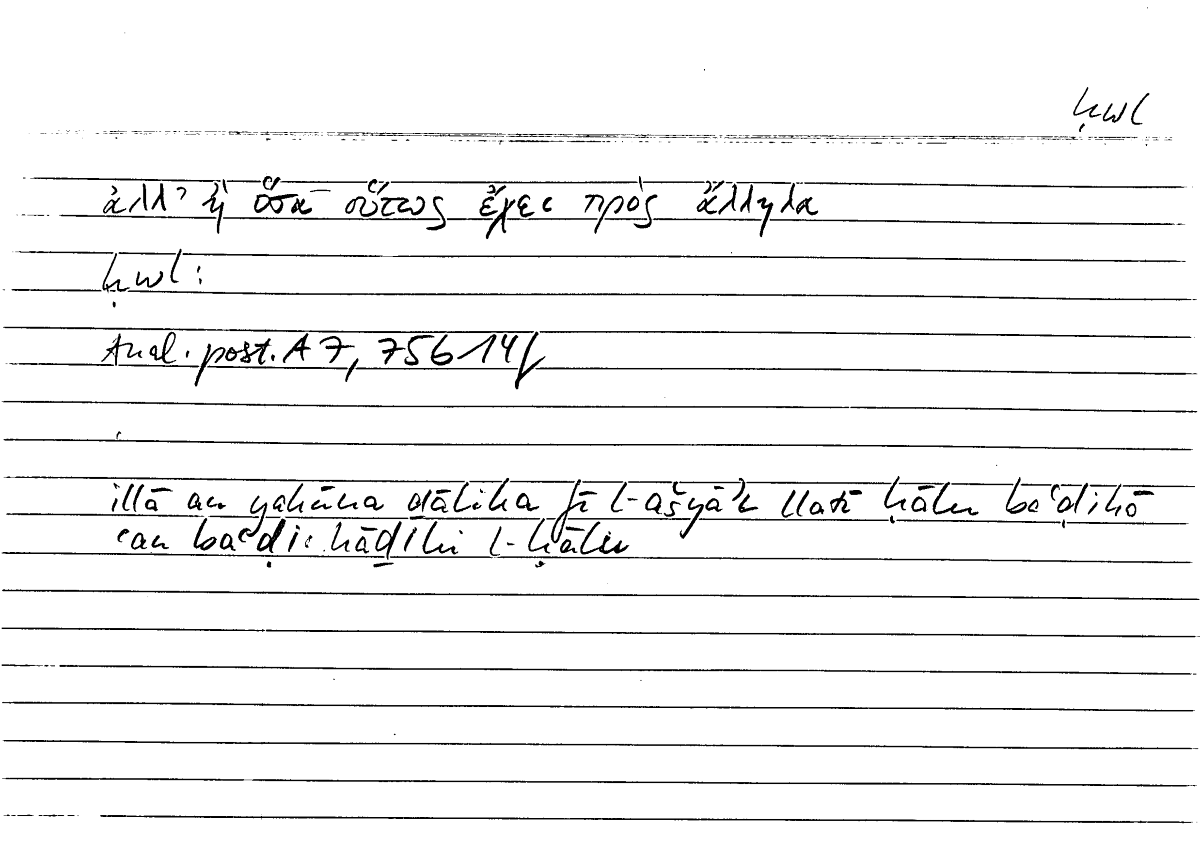 ḥwl
ἀλλ’ ἢ ὅσα οὕτως ἔχει πρὸς ἄλληλα
ḥwl:
Anal. post. A 7, 75b14f
illā an yakūna ḏālika fī l-ašyāʾi llatī ḥālu baʿḍihā
ʿan baʿḍi: hāḏihi l-ḥālu